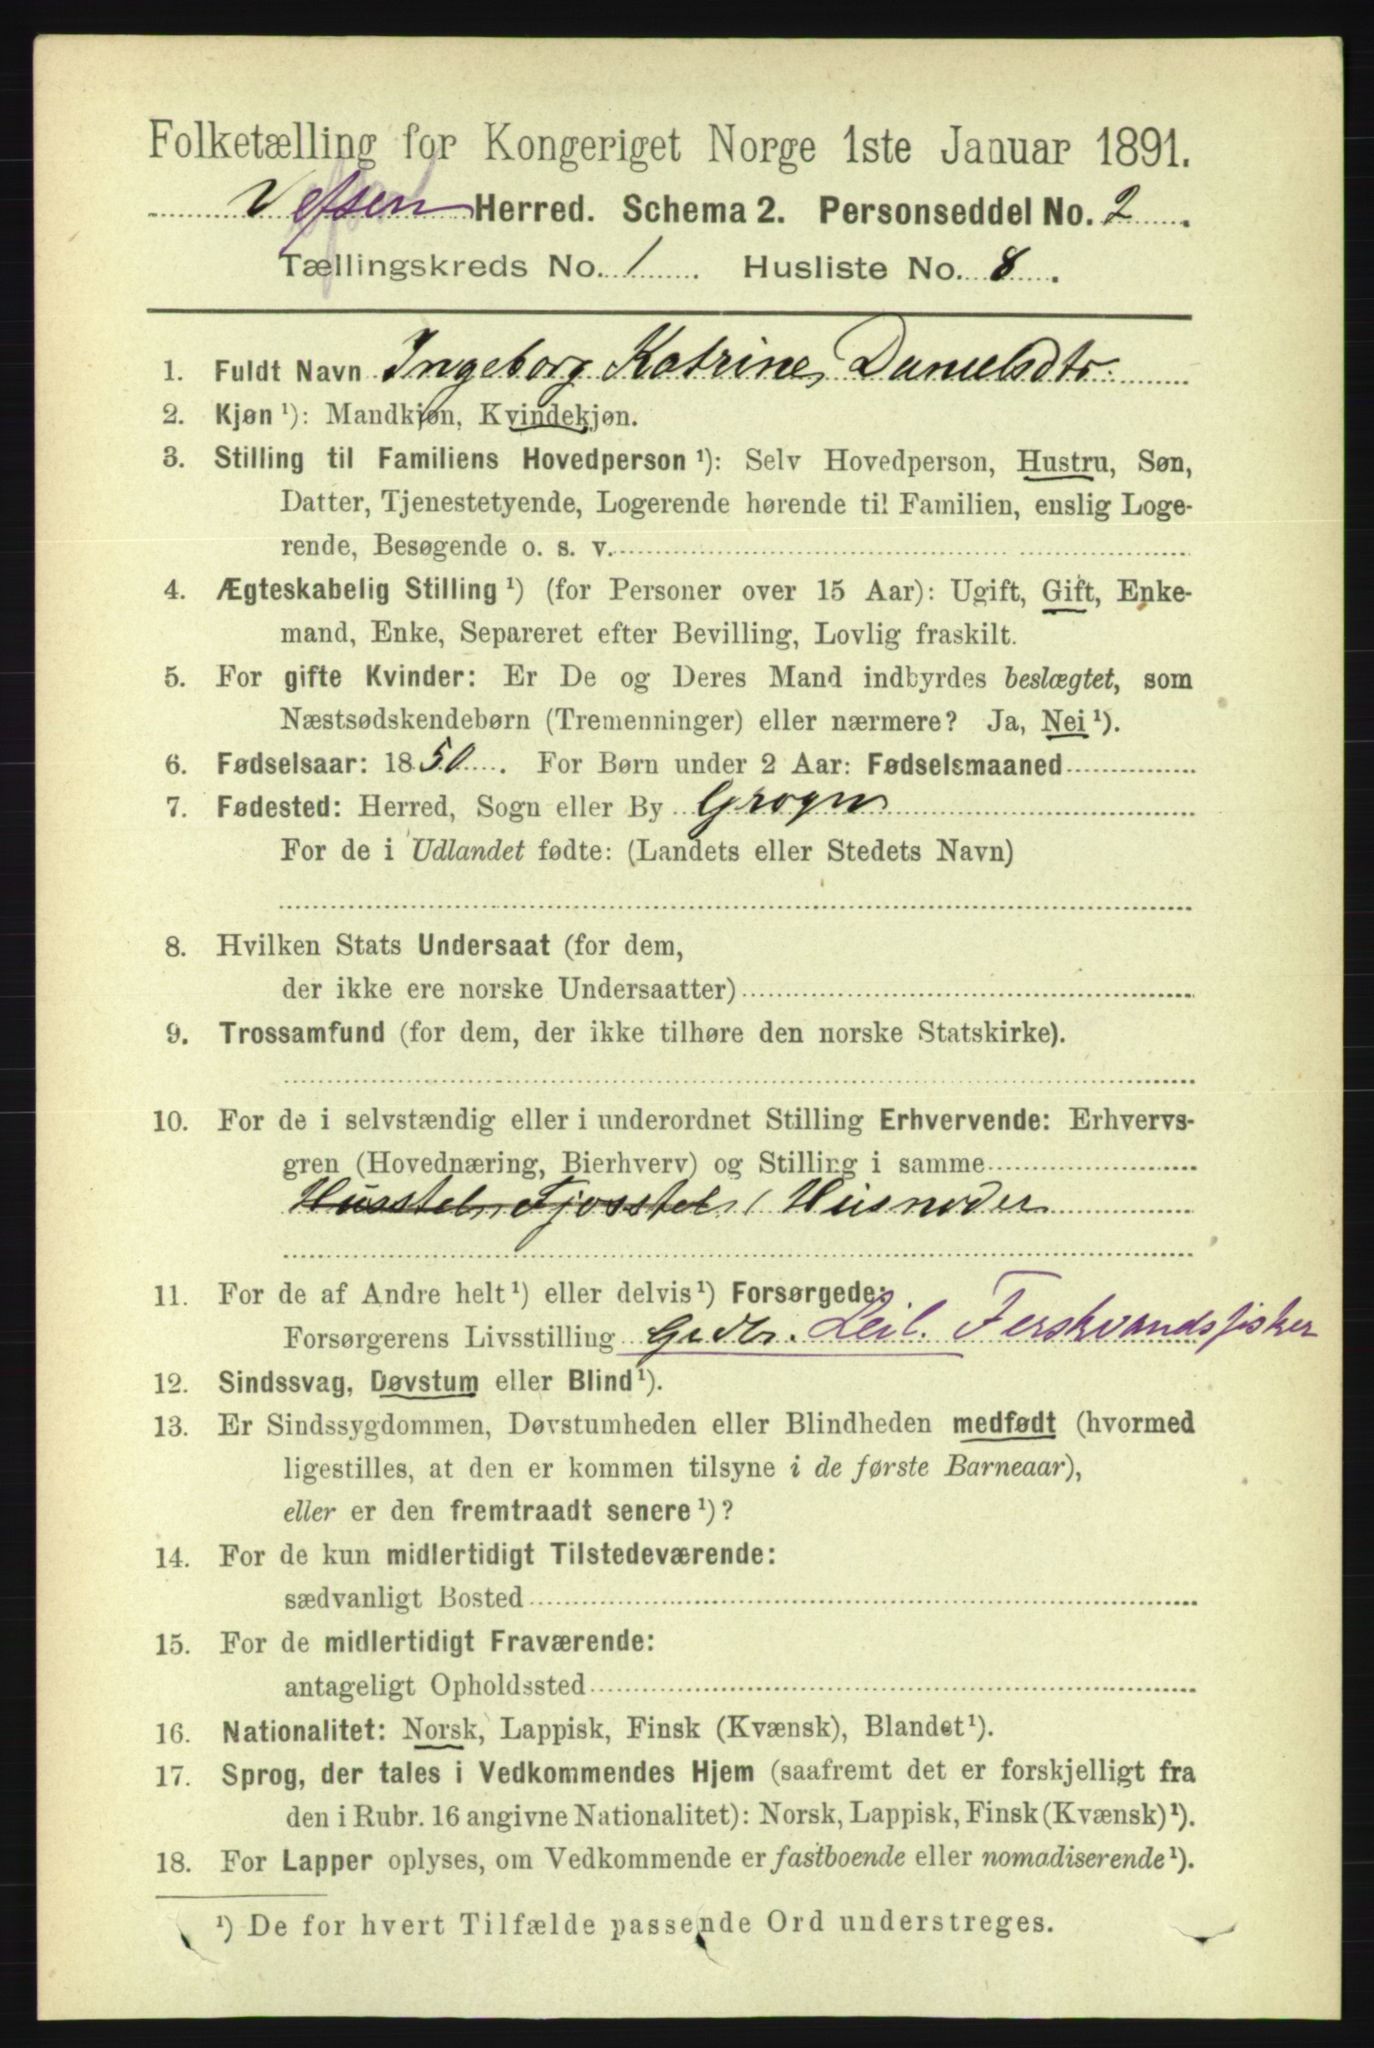 Folketælling for Kongeriget Norge 1ste Januar 1891.
Vefsen Herred. Schema 2. Personseddel No. 2.
Tællingskreds No. 1. Husliste No. 8.
1. Fuldt Navn Ingeborg Katrine Danielsdtr.
2. Kjøn ¹): Mandkjøn, Kvindekjøn.
3. Stilling til Familiens Hovedperson ¹): Selv Hovedperson, Hustru, Søn,
Datter, Tjenestetyende, Logerende hørende til Familien, enslig Loge-
rende, Besøgende o. s. v.
4. Ægteskabelig Stilling ¹) (for Personer over 15 Aar): Ugift, Gift, Enke-
mand, Enke, Separeret efter Bevilling, Lovlig fraskilt.
5. For gifte Kvinder: Er De og Deres Mand indbyrdes beslægtet, som
Næstsødskendebørn (Tremenninger) eller nærmere? Ja, Nei ¹).
6. Fødselsaar: 1850. For Børn under 2 Aar: Fødselsmaaned
7. Fødested: Herred, Sogn eller By
For de i Udlandet fødte: (Landets eller Stedets Navn)
8. Hvilken Stats Undersaat (for dem,
der ikke ere norske Undersaatter)
9. Trossamfund (for dem, der ikke tilhøre den norske Statskirke).
10. For de i selvstændig eller i underordnet Stilling Erhvervende: Erhvervs-
gren (Hovednæring, Bierhverv) og Stilling i samme
Husstel, Fjosstel, Husmoder
11. For de af Andre helt ¹) eller delvis ¹) Forsørgede:
Forsørgerens Livsstilling Grdbr. Leil. Ferskvandsfisker
12. Sindssvag, Døvstum eller Blind ¹).
13. Er Sindssygdommen, Døvstumheden eller Blindheden medfødt (hvormed
ligestilles, at den er kommen tilsyne i de første Barneaar),
eller er den fremtraadt senere ¹)?
14. For de kun midlertidigt Tilstedeværende:
sædvanligt Bosted
15. For de midlertidigt Fraværende:
antageligt Opholdssted
16. Nationalitet: Norsk, Lappisk, Finsk (Kvænsk), Blandet ¹).
17. Sprog, der tales i Vedkommendes Hjem (saafremt det er forskjelligt fra
den i Rubr. 16 angivne Nationalitet): Norsk, Lappisk, Finsk (Kvænsk) ¹).
18. For Lapper oplyses, om Vedkommende er fastboende eller nomadiserende ¹).
¹) De for hvert Tilfælde passende Ord understreges.